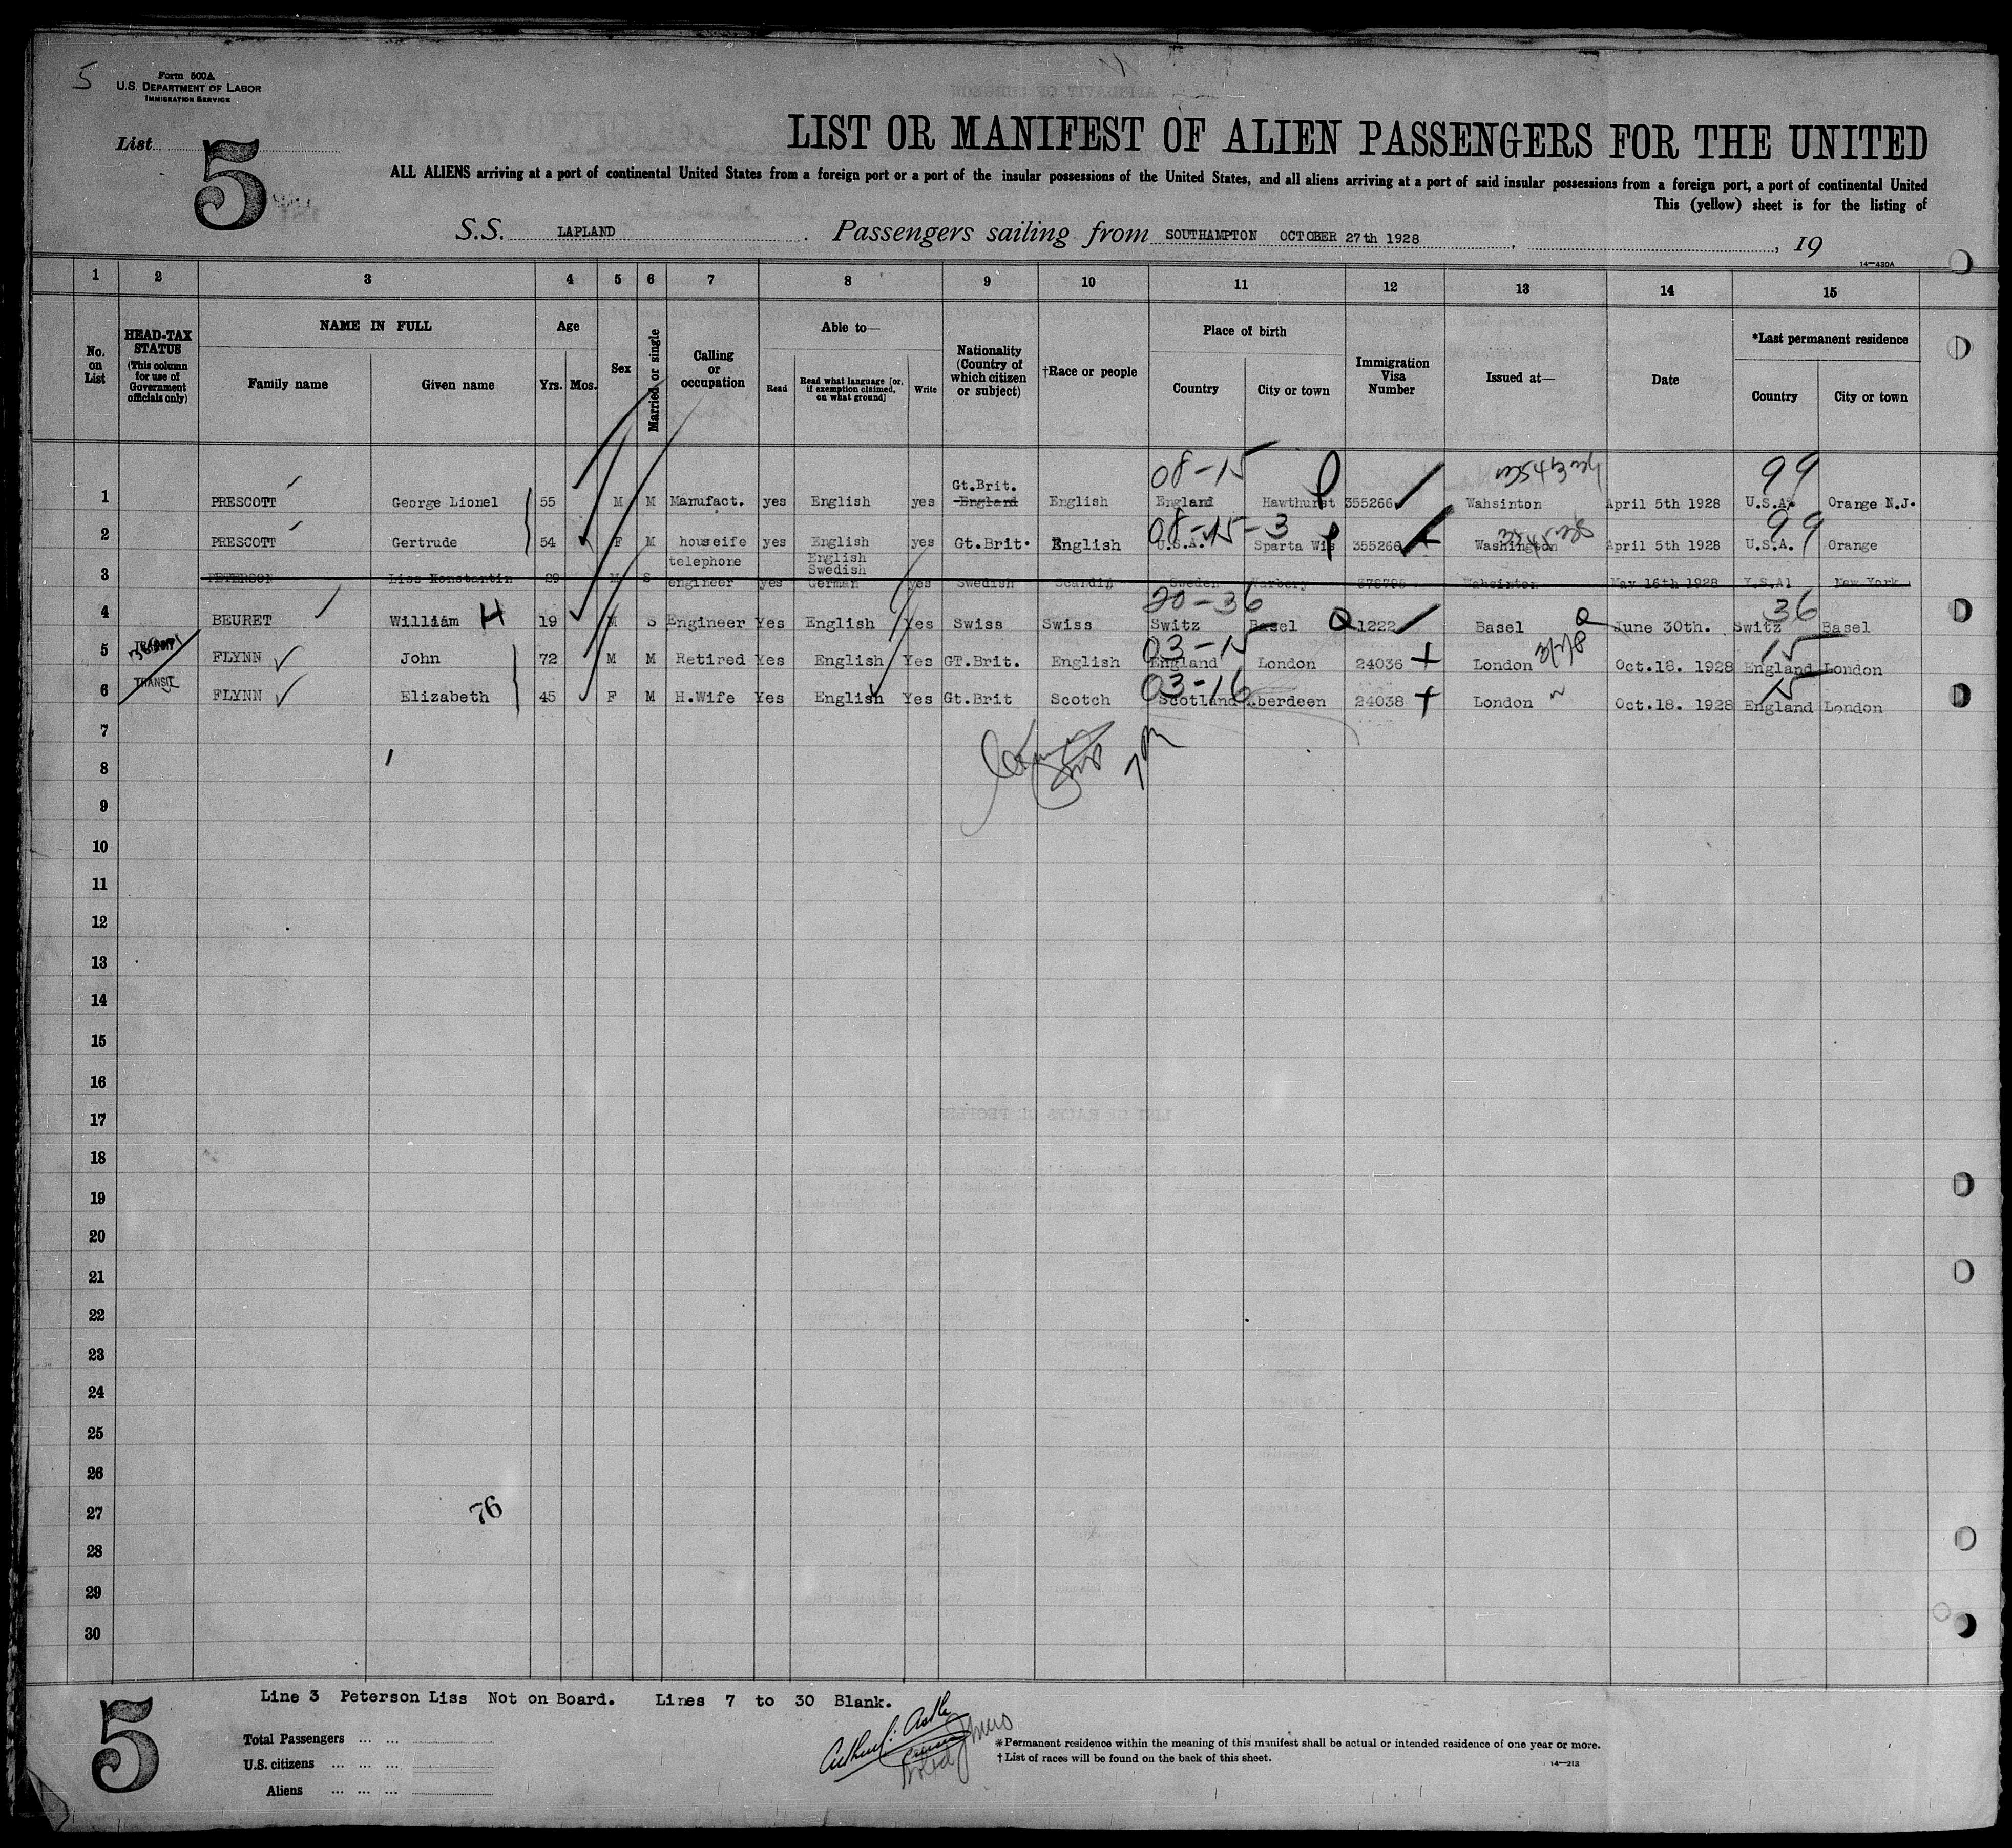 5
Form 500A
U.S. DEPARTMENT OF LABOR
IMMIGRATION SERVICE
List 5
LIST OR MANIFEST OF ALIEN PASSENGERS FOR THE UNITED
ALL ALIENS arriving at a port of continental United States from a foreign port or a port of the insular possessions of the United States, and all aliens arriving at a port of said insular possessions from a foreign port, a port of continental United
This (yellow) sheet is for the listing of
S.S. LAPLAND. Passengers sailing from SOUTHAMPTON OCTOBER 27th 1928, , 19
14—430A
1 2 3 4 5 6 7 8 9 10 11 12 13 14 15
No. on List
HEAD-TAX STATUS
(This column for use of Government officials only)
NAME IN FULL
Family name Given name
Age
Yrs. Mos.
Sex
Married or single
Calling or occupation
Able to—
Read
Read what language [or, if exemption claimed, on what ground]
Write
Nationality (Country of which citizen or subject)
†Race or people
Place of birth
Country City or town
Immigration Visa Number
Issued at—
Date
*Last permanent residence
Country City or town
08-15 99
Gt.Brit.
1 PRESCOTT George Lionel 55 M M Manufact. yes English yes England English England Hawthurst 355266 Wahsinton April 5th 1928 U.S.A. Orange N.J.
08-15-3 99
2 PRESCOTT Gertrude 54 F M houseife yes English yes Gt.Brit. English U.S.A. Sparta Wis 355268 Washington April 5th 1928 U.S.A. Orange
telephone English
Swedish
3 PETERSON Liss Konstantin 29 M S engineer yes German yes Swedish Scandin Sweden Warbery Wahsinton May 16th 1928 Y.SA1 New York
20-36 36
4 BEURET William H 19 M S Engineer Yes English Yes Swiss Swiss Switz Basel 1222 Basel June 30th. Switz Basel
03-15 15
5 TRANSIT FLYNN John 72 M M Retired Yes English Yes GT.Brit. English England London 24036 London Oct.18. 1928 England London
03-16 15
6 TRANSIT FLYNN Elizabeth 45 F M H.Wife Yes English Yes Gt.Brit Scotch Scotland Aberdeen 24038 London Oct.18. 1928 England London
7
8
9
10
11
12
13
14
15
16
17
18
19
20
21
22
23
24
25
26
27
76
28
29
30
Line 3 Peterson Liss Not on Board. Lines 7 to 30 Blank.
5
Total Passengers
U.S. citizens
Aliens
*Permanent residence within the meaning of this manifest shall be actual or intended residence of one year or more.
†List of races will be found on the back of this sheet.
14—213